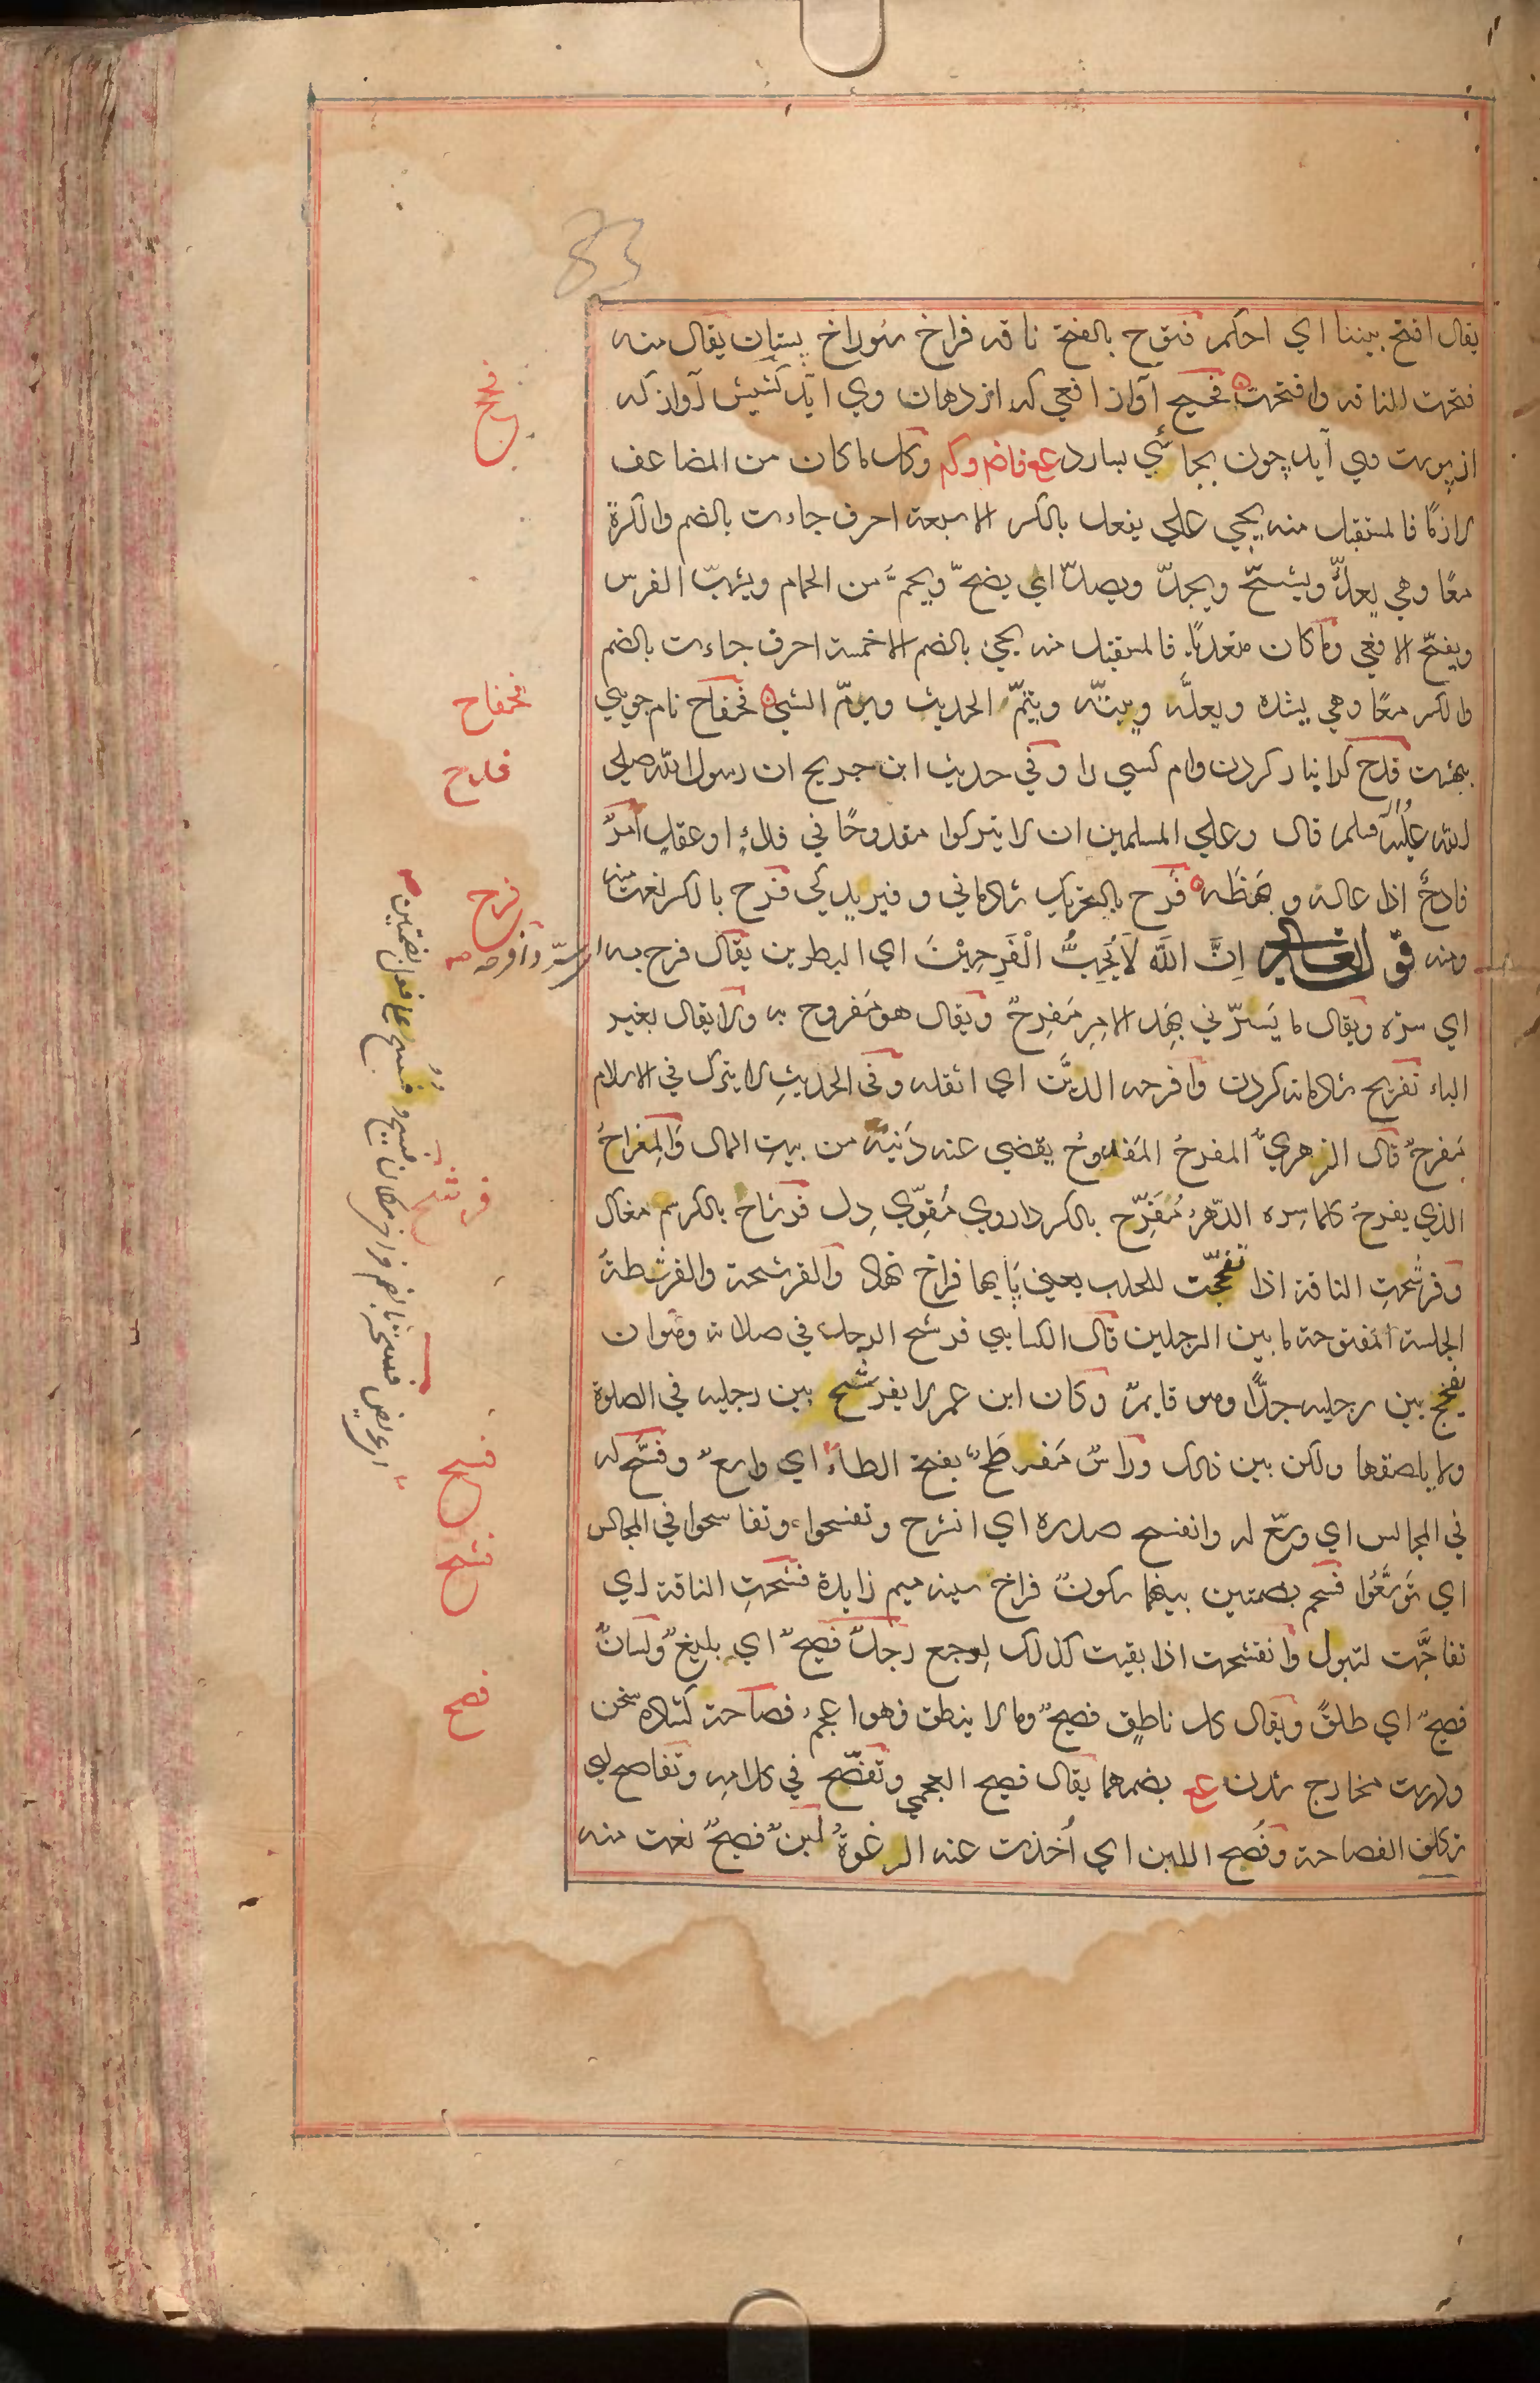 83
يقال افتح بيننا اي احكم فتوح بالفتح ناقه فراخ سوراخ پستان يقال منه
فتحت الناقه وافتحت فحيح آواز افعي كه از دهان وي آيد كشيش آواز كه
از پوست وي آيد چون بجائي بسارد ع فاض وكم وكل ما كان من المضاعف
لازمًا فالمستقبل منه يجي علي يفعل بالكسر الا سبعة احرف جاءت بالضم والكسرة
معًا وهي يعلّ ويشحّ ويجدّ ويصدّ اي يضجّ ويجمّ من الجمام ويشبّ الفرس
ويفحّ الافعي وما كان متعديًا فالمستقبل منه يجئ بالضم الا خمسة احرف جاءت بالضم
والكسر معًا وهي يشده ويعلّه ويبتّه وينمّ الحديث ويرمّ الشي فحفاح نام جويي
بهشت فدح كرانبار كردن وام كسي را وفي حديث ابن جريج ان رسول الله صلي
الله عليه وسلم قال وعلي المسلمين ان لا يتركوا مفدوحًا في فداءٍ او عقلٍ امرٌ
فادحٌ اذا عاله وبهظه فرح بالتحريك شادماني وفيريدكي فرح بالكسر نعت منه
ومنه قوله تعالي اِنَّ اللّٰهَ لَا يُحِبُّ الْفَرِحِيْنَ اي البطرين يقال فرح به اي سرّ وافرحه
اي سرّه ويقال ما يَسرّني بهذ الامرِ مَفرِحٌ ويقال هو مَفروح به ولا يقال بغير
الباء تفريح شادمانه كردن وافرحه الدَّين اي اثقله وفي الحديث لا يترك في الاسلام
مَفرحٌ قال الزهريّ المفرحُ المَفدوحُ يقضي عنه دَينه من بيتِ المال والمِفراحُ
الذي يفرحُ كلما سره الدّهرُ مُفَرِّح بالكسر داروي مُقوّي دِل فرشاح بالكسر سم
وفرشحتِ الناقة اذا تفجّت للحلب يعني پايها فراخ نهاد والفرشحة والفرشطةُ
الجلسة المفتوحة ما بين الرجلين قال الكسايي فرشح الرجلُ في صلاته وهو ان
يفحج بين رجليه جدًّا وهو قايمٌ وكان ابن عمر لا يفرشح بين رجليه في الصلوة
ولا يلصقها ولكن بين ذلك وراسٌ مَفرطَحٌ بفتح الطاء اي واسعٌ وفسّح له
في المجالس اي وسّع له وانفسح صدره اي انشرح وتفسحوا وتفاسحوا في المجالس
اي تَوَسَّعُوا فسحم بضمتين بينهما سكونٌ فراخ سينه ميم زايدة فشحتِ الناقة اي
تفاجَّت لتبول وانفشحت اذا بقيت كذلك لوجع رجلٌ فصيحٌ اي بليغٌ ولسانٌ
فصيحٌ اي طلقٌ ويقال كل ناطقٍ فصيحٌ وما لا ينطق فهو اعجمُ فصاحة كشاده سخن
ودرست مخارج شدن ع بضمهما يقال فصح العجمي وتفصّح في كلامه وتفاصح اي
تكلف الفصاحة وفَصُح اللبن اي اُخذت عنه الرغوةُ لبنٌ فصحٌ نعت منه
فحح
فحفاح
فدح
فرح
فرشح
فسح
فشح
فصح